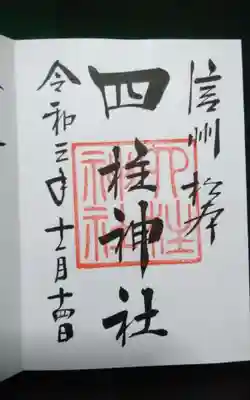 信州 松本
四柱神社
令和三年 十一月 十四日
四柱神社